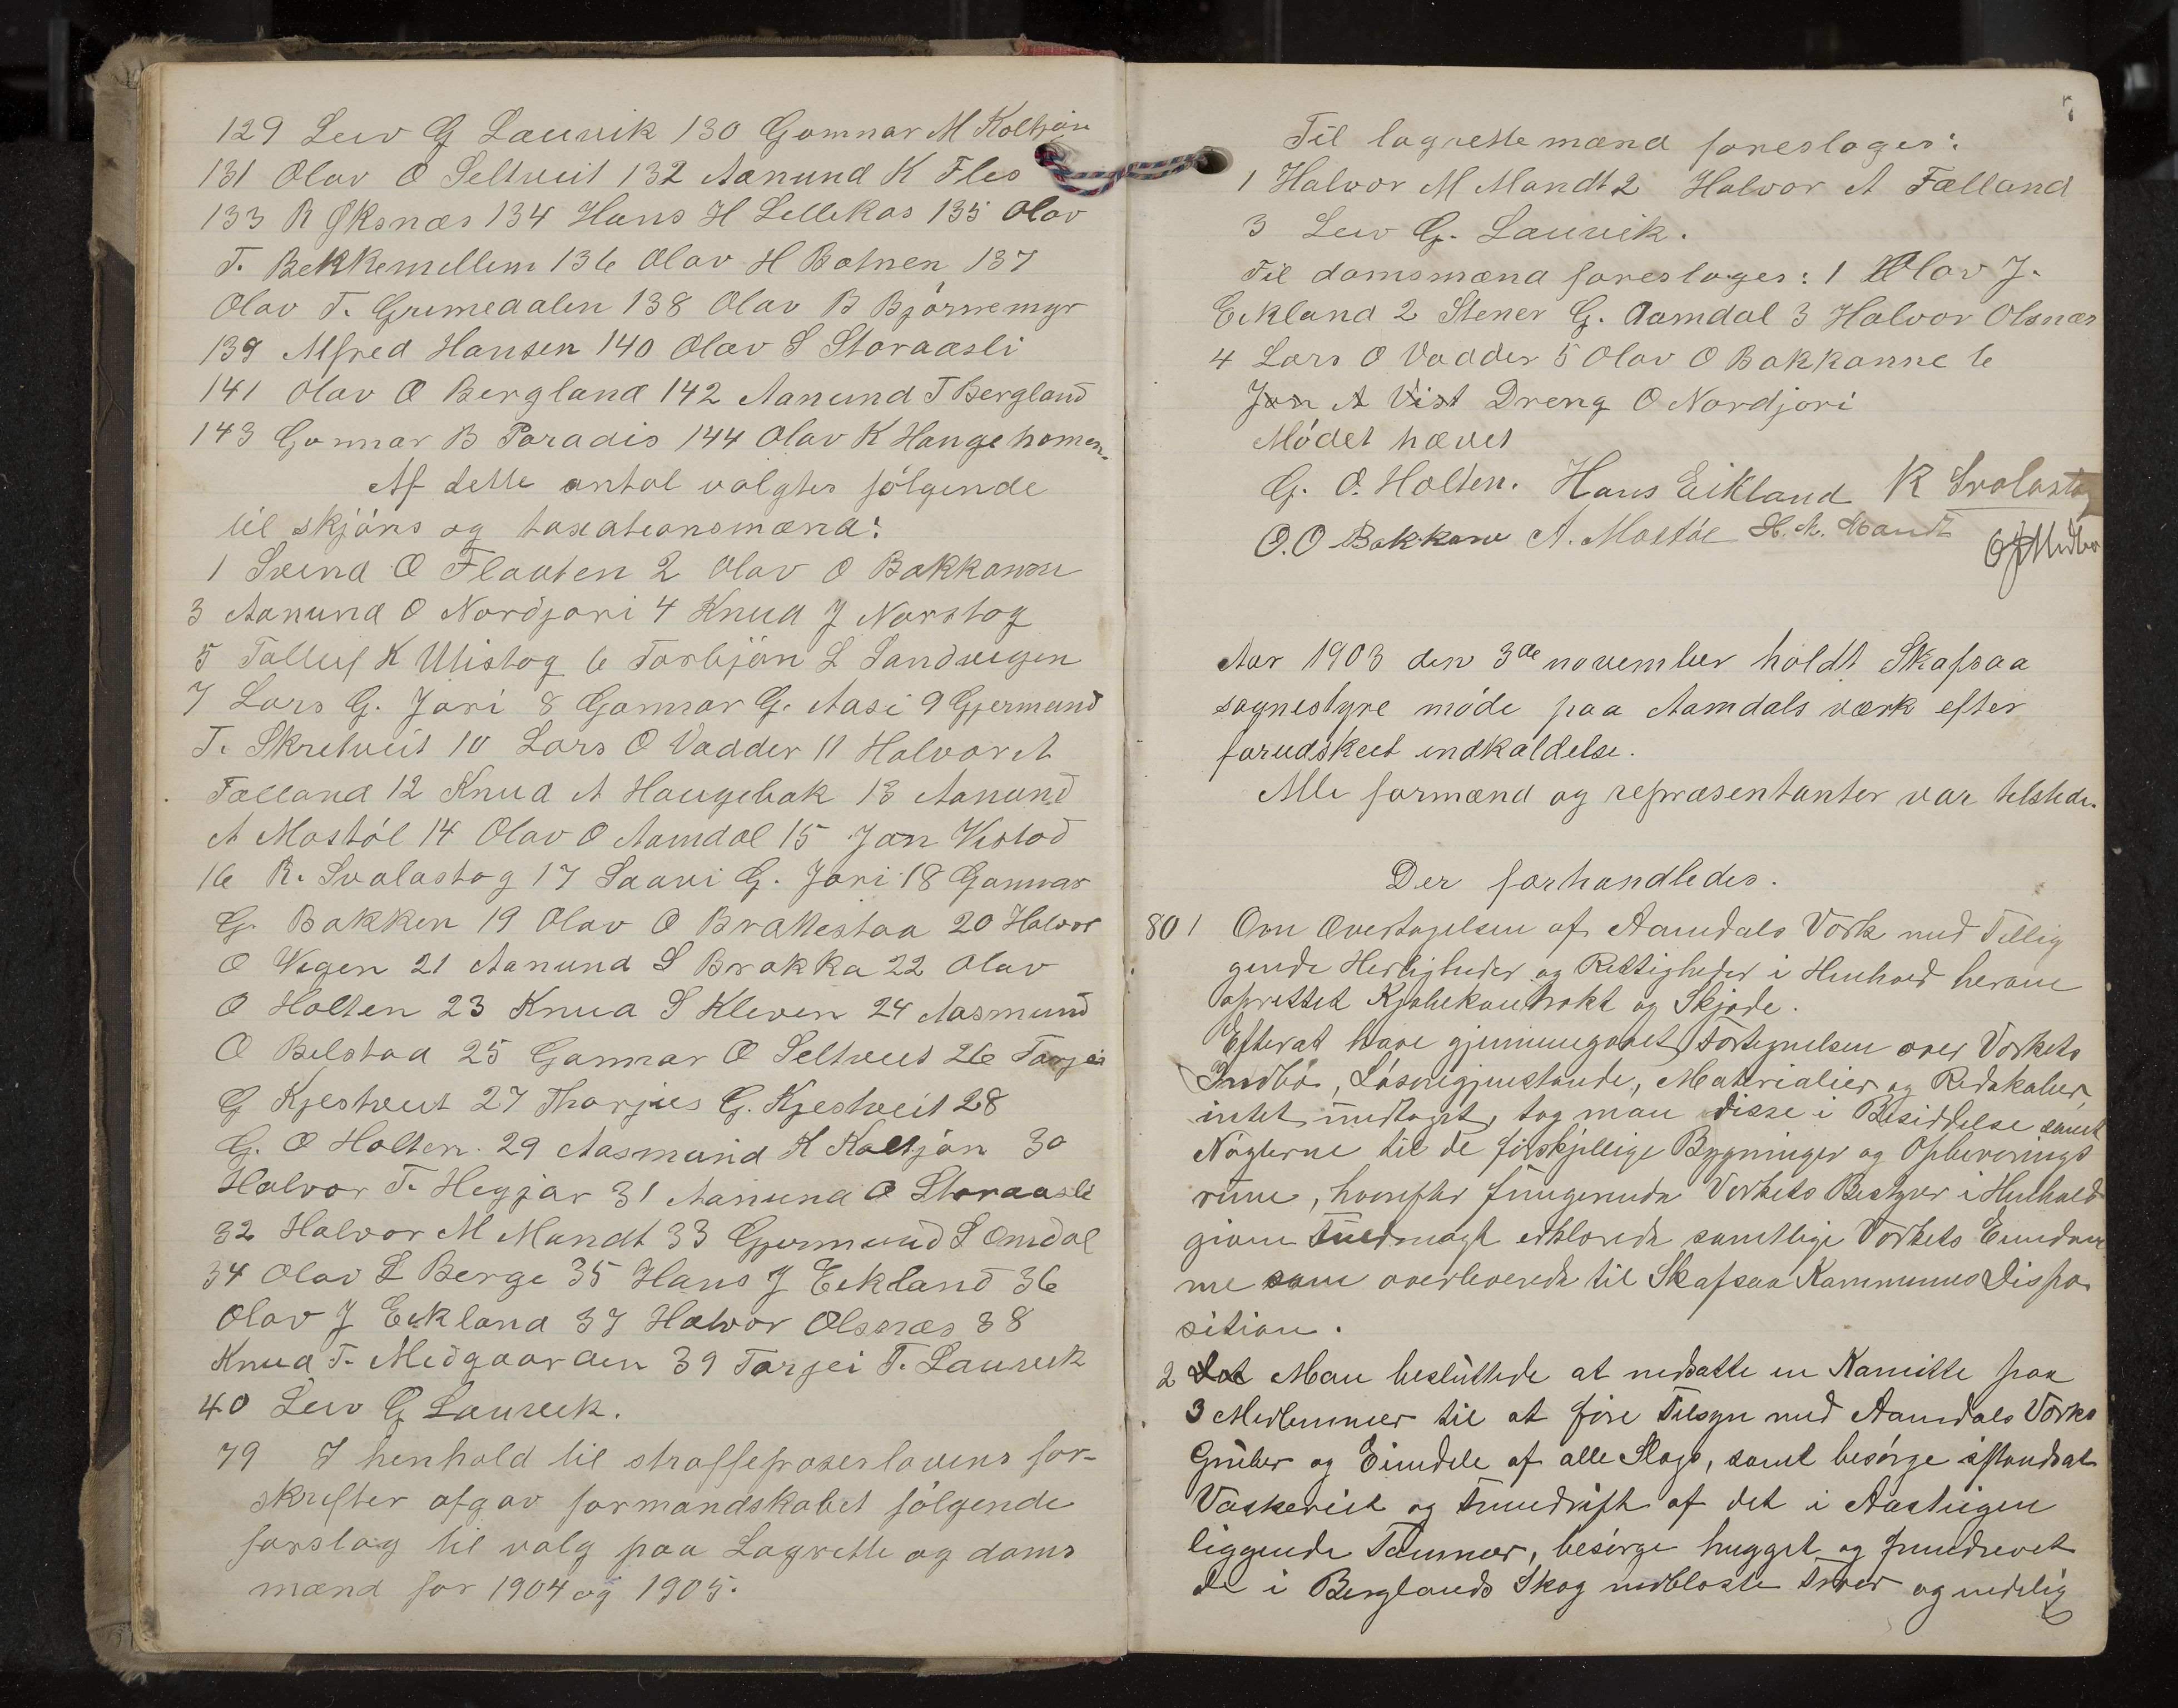 129 Leiv G Lauvik 130 Gomnar M Koltjön
131 Olav O Seltveit 132 Aanund K Fles
133 R Øksnæs 134 Hans H Lillekas 135 Olav
T. Bekkemellem 136 Olav H Botnen 137
Olav T. Grimedalen 138 Olav B Björnemyr
139 Alfred Hansen 140 Olav S Storaasli
141 Olav O Bergland 142 Aanund T Bergland
143 Gunnar B Paradis 144 Olav K Haugehomen.
Af dette antal valgtes følgende
til skjöns og taxationsmænd:
1 Svend O Flauten 2 Olav O Bakkanne
3 Aanund O Nordjori 4 Knud J Norstog
5 Tallef K Utistog 6 Torbjön L Sandvigen
7 Lars G. Jori 8 Gomnar G. Aase 9 Gjermund
T. Skretveit 10 Lars O Vadder 11 Halvor A
Fælland 12 Knud A Haugebak 13 Aanund
A Mostöl 14 Olav O Aamdal 15 Jon Vistad
16 R. Svalastog 17 Saavi G. Jori 18 Gomnar
G. Bakken 19 Olav O Brattestaa 20 Halvor
O Vegen 21 Aanund S Brokka 22 Olav
O Holten 23 Knud S Kleven 24 Aasmund
O Bilstad 25 Gomnar O Seltveit 26 Torjei
G Kjestveit 27 Thorjus G. Kjestveit 28
G. O Holten. 29 Aasmund K Koltjön 30
Halvor T. Hegjar 31 Aanund O Storaasli
32 Halvor M Mandt 33 Gjermund S Omdal
34 Olav L Berge 35 Hans J Eikland 36
Olav J Eikland 37 Halvor Olsnæs 38
Knud T. Midgaarden 39 Torjei T. Lauvik
40 Leiv G Lauvik.
79 I henhold til straffeproseslovens for-
skrifter afgav formandskabet følgende
forslag til valg paa Lagrette og doms
mænd for 1904 og 1905.
Til lagrettemænd foreslages:
1 Halvor M Mandt 2 Halvor A Fælland
3 Leiv G. Lauvik.
Til domsmænd foreslages: 1 Olav J.
Eikland 2 Stener G. Aamdal 3 Halvor Olsnæs
4 Lars O Vadder 5 Olav O Bakkanne 6
Jon A Vist Dreng O Nordjori
Mödet hævet
G. O. Holten. Hans Eikland R Svalastog
O. O Bakkane A. Mostöl H. M. Mandt
Aar 1903 den 3de november holdt Skafsaa
sognestyre möde paa Aamdals værk efter
forudskeet indkaldelse.
Alle formænd og repræsentanter var tilstede.
Der forhandledes.
80 1 Om Overtagelsen af Aamdals Værk med Tillig
gende Herligheder og Rettigheder i Henhold herom
oprettet Kjøbekontrakt og Skjøde.
Efterat have gjennemgaaet Fortegnelsen over Værkets
Indbo, Løsøregjenstande, Materialier og Redskaber
intet undtaget, tog man disse i Besiddelse samt
Nøglerne til de forskjellige Bygninger og Opbevarings
rum, hvorefter fungerende Værkets Bestyrer i Henhold
given Fuldmagt erklærede samtlige Værkets Eiendom
me som overleverede til Skafsaa Kommunes Dispo
sition.
2 Det Man besluttede at nedsætte en Komite paa
3 Medlemmer til at føre Tilsyn med Aamdals Værks
Gruber og Eiendele af alle Slags, samt besørge istandsat
Vaskeriet og Fremdrift af det i Aastigen
liggende Tømmer, besørge hugget og fremdrevet
de i Berglands Skog nedblæste Træer og endelig